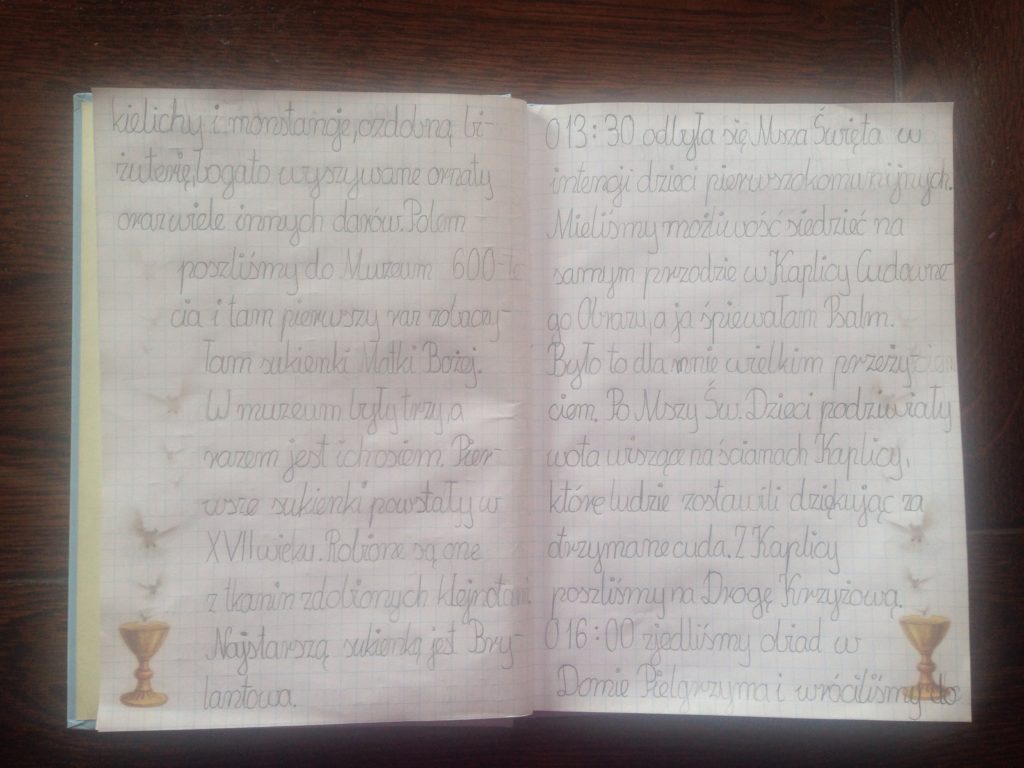 kielichy i monstancje, ozdobną bi-
żuterię, bogato wyszywane ornaty
oraz wiele innych darów. Potem
poszliśmy do Muzeum 600-le
cia i tam pierwszy raz zobaczy-
łam sukienki Matki Bożej.
W muzeum były trzy, a
razem jest ich osiem. Pier-
wsze sukienki powstały w
XVII wieku. Robione są one
z tkanin zdobionych klejnotami.
Najstarszą sukienką jest Bry-
lantowa.
O 13:30 odbyła się Msza Święta w
intencji dzieci pierwszokomunijnych.
Mieliśmy możliwość siedzieć na
samym przodzie w Kaplicy Cudowne-
go Obrazu, a ja śpiewałam Psalm.
Było to dla mnie wielkim przeży
ciem. Po Mszy Św. Dzieci podziwiały
wota wiszące na ścianach Kaplicy,
które ludzie zostawili dziękując za
otrzymane cuda. Z Kaplicy
poszliśmy na Drogę Krzyżową.
O 16:00 zjedliśmy obiad w
Domie Pielgrzyma i wróciliśmy do